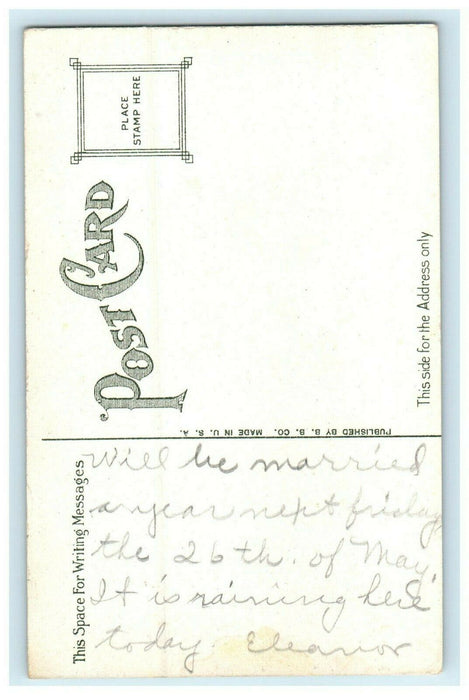 PLACE
STAMP HERE
POST CARD
This side for the Address only
PUBLISHED BY B. B. CO. MADE IN U. S. A.
This Space For Writing Messages
Will be married
a year next friday
the 26th. of May.
It is raining here
today. Eleanor